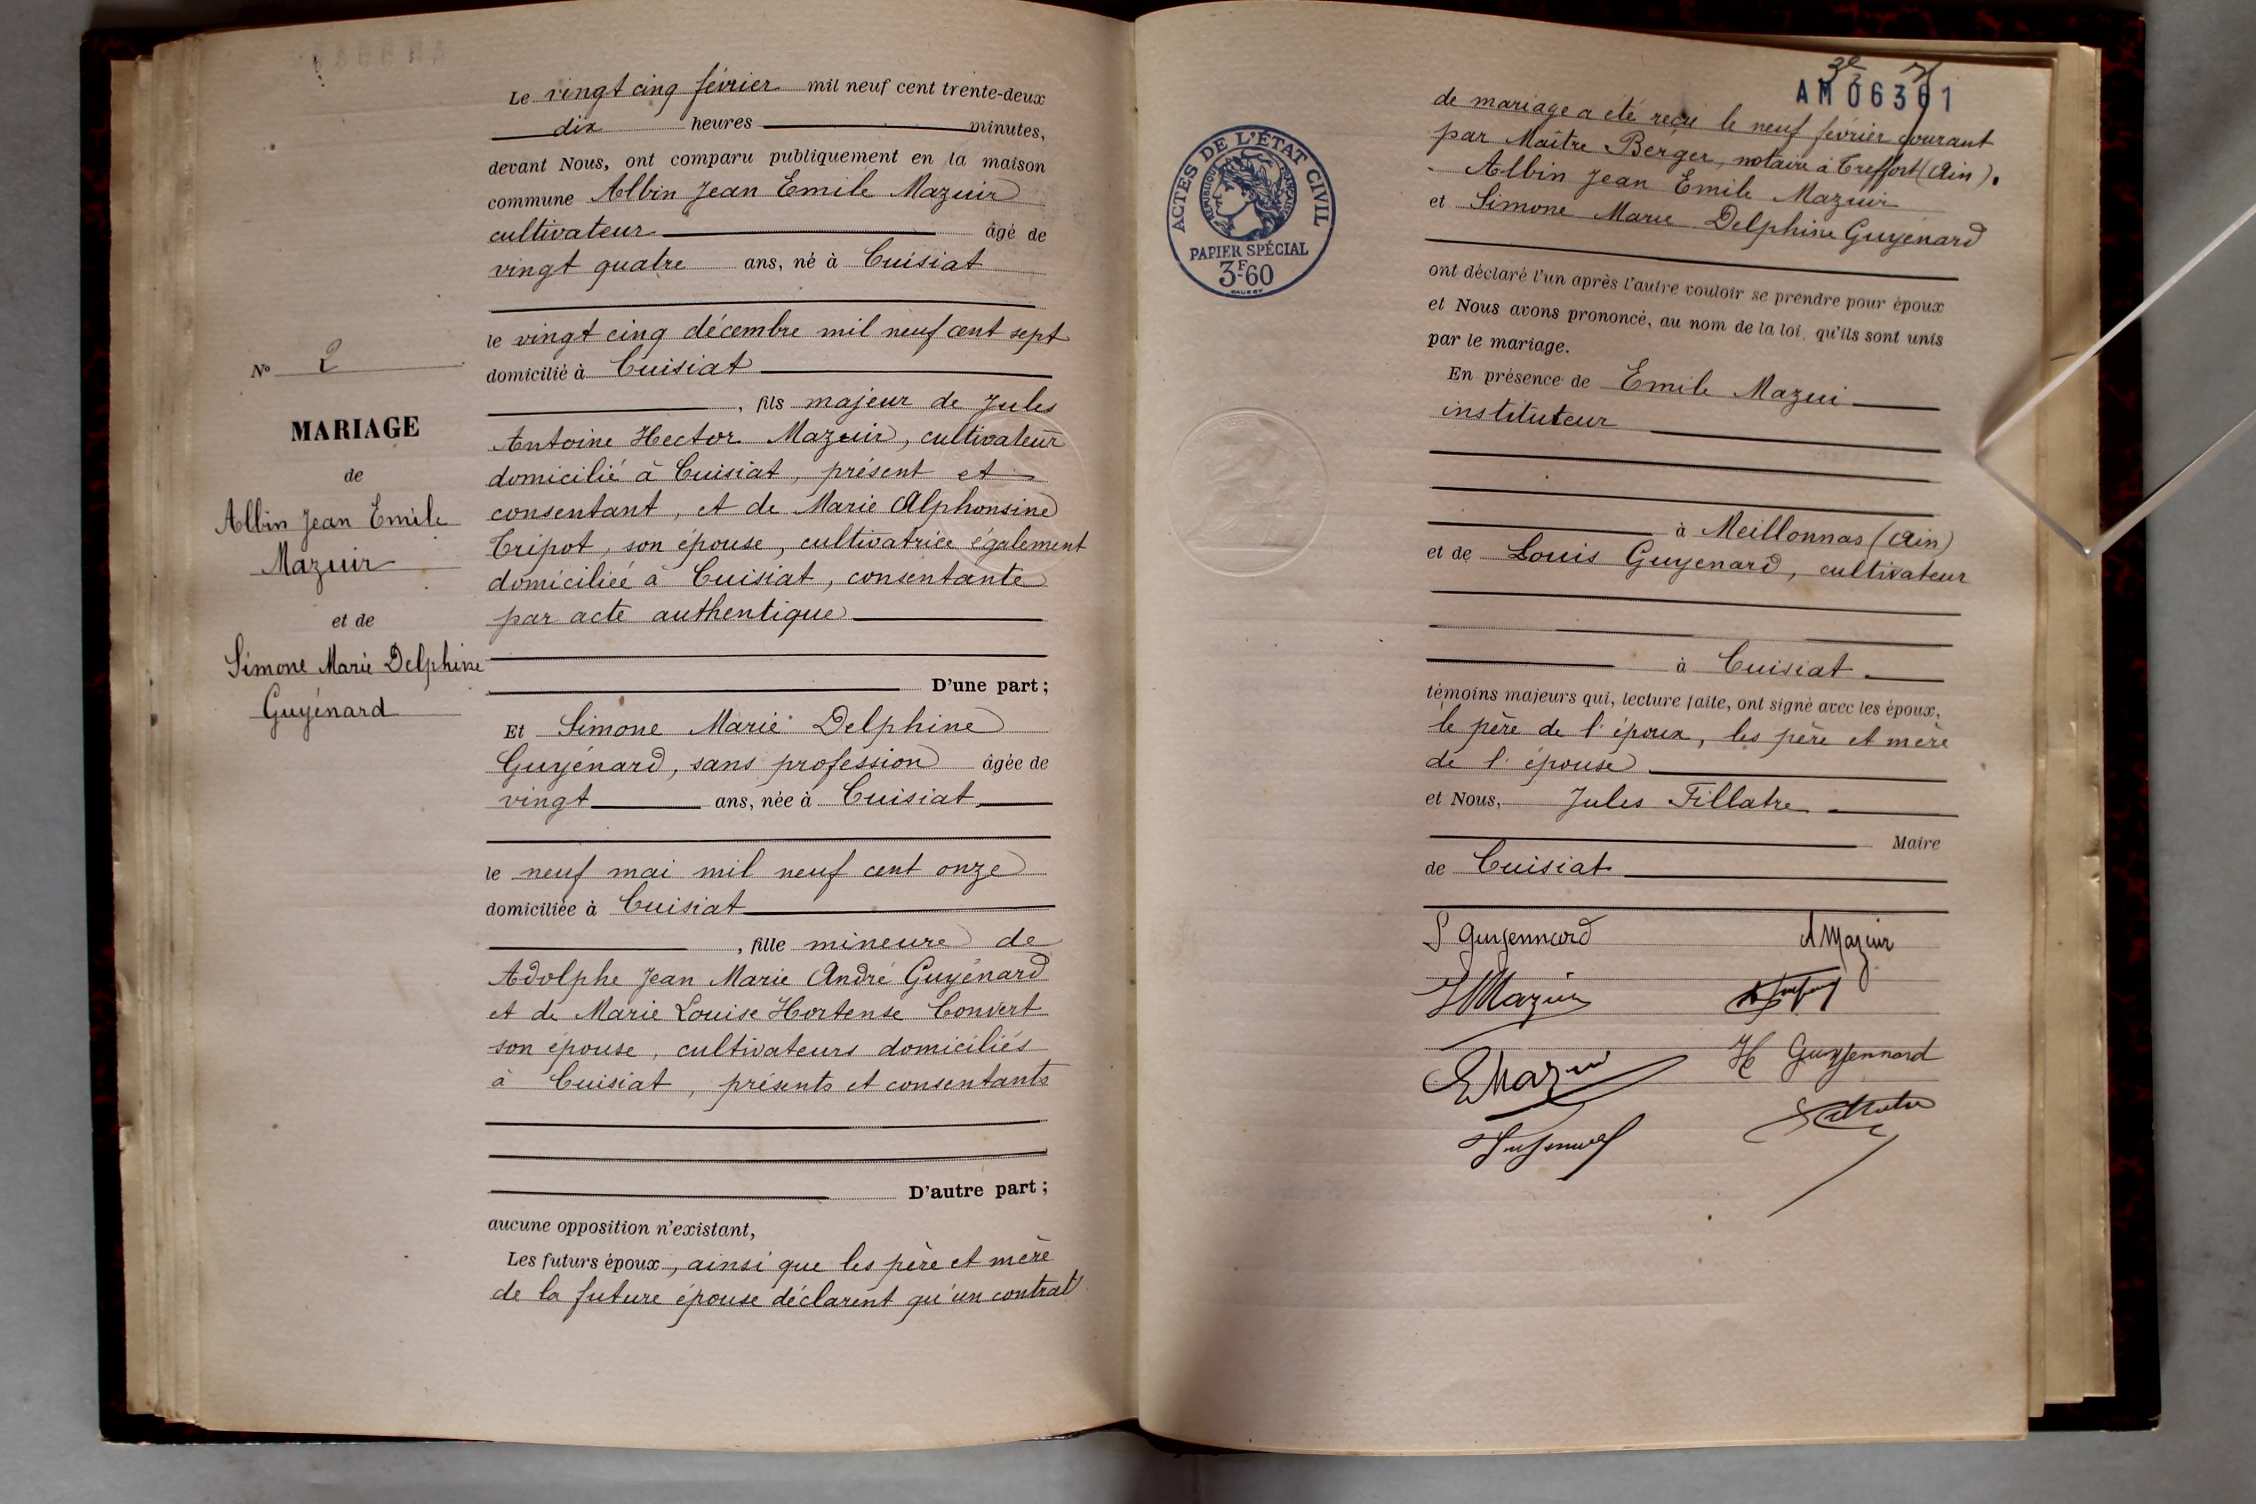 Le vingt cinq février mil neuf cent trente-deux
dix heures minutes,
devant Nous, ont comparu publiquement en la maison
commune Albin Jean Emile Mazuir
cultivateur âgé de
vingt quatre ans, né à Cuisiat
le vingt cinq décembre mil neuf cent sept
domicilié à Cuisiat
, fils majeur de Jules
Antoine Hector Mazuir, cultivateur
domicilié à Cuisiat, présent et
consentant, et de Marie Alphonsine
Tripot, son épouse, cultivatrice également
domiciliée à Cuisiat, consentante
par acte authentique
D'une part ;
Et Simone Marie Delphine
Guyénard, sans profession âgée de
vingt ans, née à Cuisiat
le neuf mai mil neuf cent onze
domiciliée à Cuisiat
, fille mineure de
Adolphe Jean Marie André Guyénard
et de Marie Louise Hortense Convert
son épouse, cultivateurs domiciliés
à Cuisiat, présents et consentants
D'autre part ;
aucune opposition n'existant,
Les futurs époux, ainsi que les père et mère
de la future épouse déclarent qu'un contrat
N° 2
MARIAGE
de
Albin Jean Emile
Mazuir
et de
Simone Marie Delphine
Guyénard
AM06361
de mariage a été reçu le neuf février courant
par Maître Berger, notaire à Treffort (Ain).
Albin Jean Emile Mazuir
et Simone Marie Delphine Guyénard
ont déclaré l'un après l'autre vouloir se prendre pour époux
et Nous avons prononcé, au nom de la loi, qu'ils sont unis
par le mariage.
En présence de Emile Mazui
instituteur
à Meillonnas (Ain)
et de Louis Guyenard, cultivateur
à Cuisiat
témoins majeurs qui, lecture faite, ont signé avec les époux,
le père de l'époux, les père et mère
de l'épouse
et Nous, Jules Fillatre
Maire
de Cuisiat
ACTES DE L'ÉTAT CIVIL
RÉPUBLIQUE FRANÇAISE
PAPIER SPÉCIAL
3F60
S Guyennard
A Mazuir
J Mazuir
E Mazui
H Guyennard